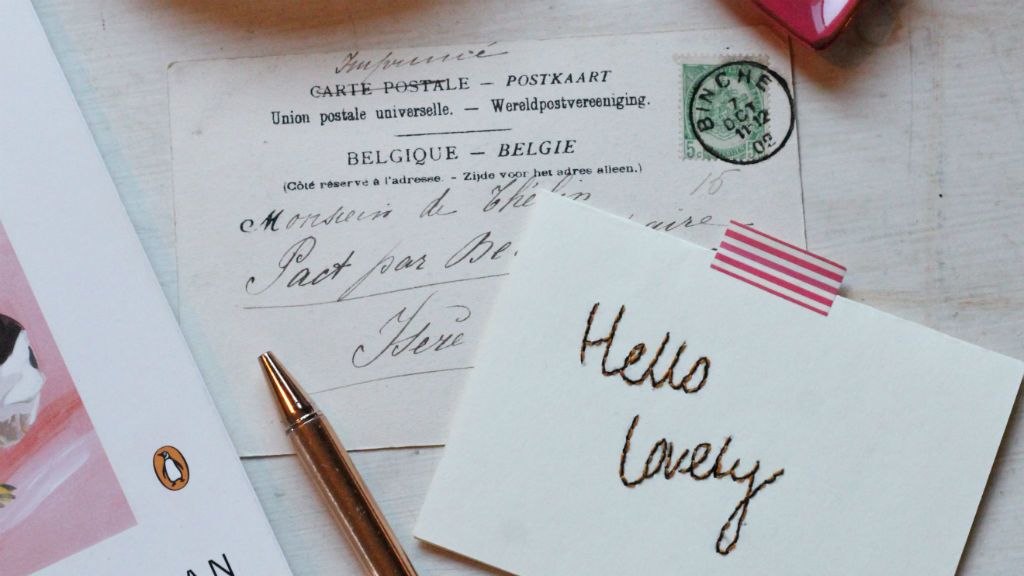 Imprimé
CARTE POSTALE — POSTKAART
Union postale universelle. — Wereldpostvereeniging.
BELGIQUE — BELGIE
(Côté réservé à l'adresse. - Zijde voor het adres alleen.)
15
Monsieur de
Pact par
Isère
5
BINCHE
7
OCT
11-12
02
Hello
lovely
AN